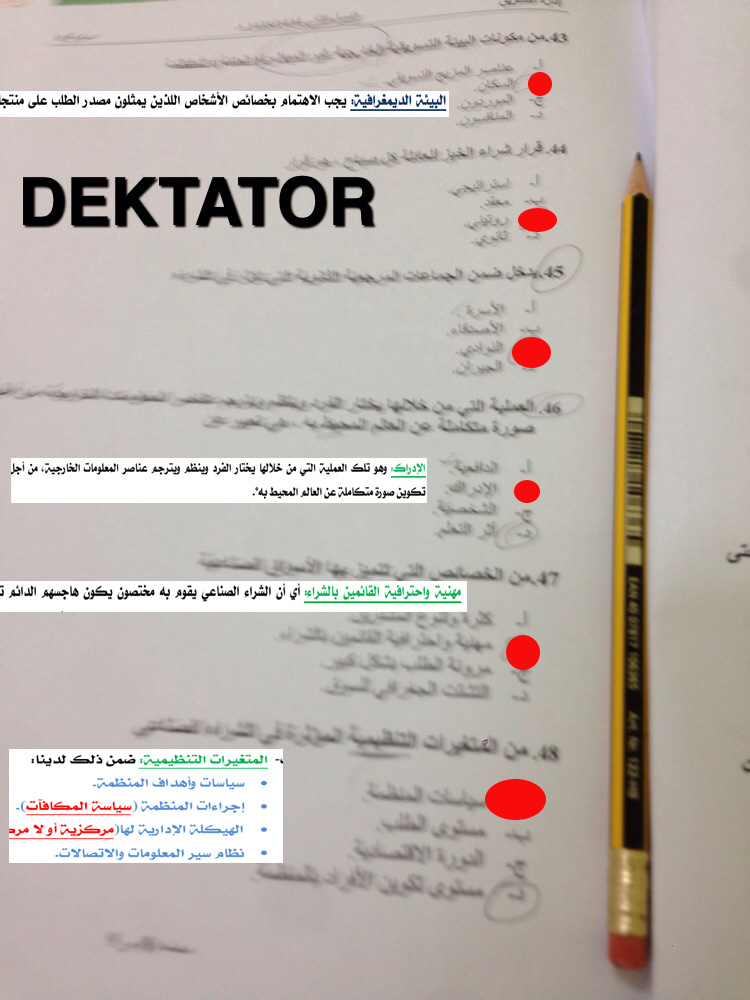 43.من مكونات البيئة التسويقية الخارجية غير
أ- عناصر المزيج التسويقي.
السكان.
ج- الموردون.
د- المنافسون.
البيئة الديمغرافية: يجب الاهتمام بخصائص الأشخاص اللذين يمثلون مصدر الطلب على
44.قرار شراء الخبز للعائلة كل صباح ، هو قرار
أ- استراتيجي.
ب- معقد.
روتيني.
د- ثانوي.
DEKTATOR
45.يدخل ضمن الجماعات المرجعية
أ- الأسرة.
ب- الأصدقاء.
النوادي.
الجيران.
46.العملية التي من خلالها يختار الفرد وينظم ويترجم
صورة متكاملة عن العالم المحيط به ، هي تعبير عن
أ- الدافعية.
الإدراك.
ج- الشخصية.
د- أثر التعلم.
الإدراك: وهو تلك العملية التي من خلالها يختار الفرد وينظم ويترجم عناصر المعلومات الخارجية، من أجل
تكوين صورة متكاملة عن العالم المحيط به".
47.من الخصائص التي تتميز بها الأسواق الصناعية
مهنية واحترافية القائمين بالشراء: أي أن الشراء الصناعي يقوم به مختصون يكون هاجسهم الدائم
أ- كثرة وتنوع المشترين.
مهنية واحترافية القائمين بالشراء.
ج- مرونة الطلب بشكل كبير.
د- التشتت الجغرافي للسوق.
48.من المتغيرات التنظيمية المؤثرة في الشراء الصناعي
سياسات المنظمة.
ب- مستوى الطلب.
ج- الدورة الاقتصادية.
د- مستوى تكوين الأفراد بالمنظمة.
- المتغيرات التنظيمية: ضمن ذلك لدينا:
• سياسات وأهداف المنظمة.
• إجراءات المنظمة (سياسة المكافآت).
• الهيكلة الإدارية لها(مركزية أو لا
• نظام سير المعلومات والاتصالات.
EAN 40 07817 106365 Art. Nr. 122-HB